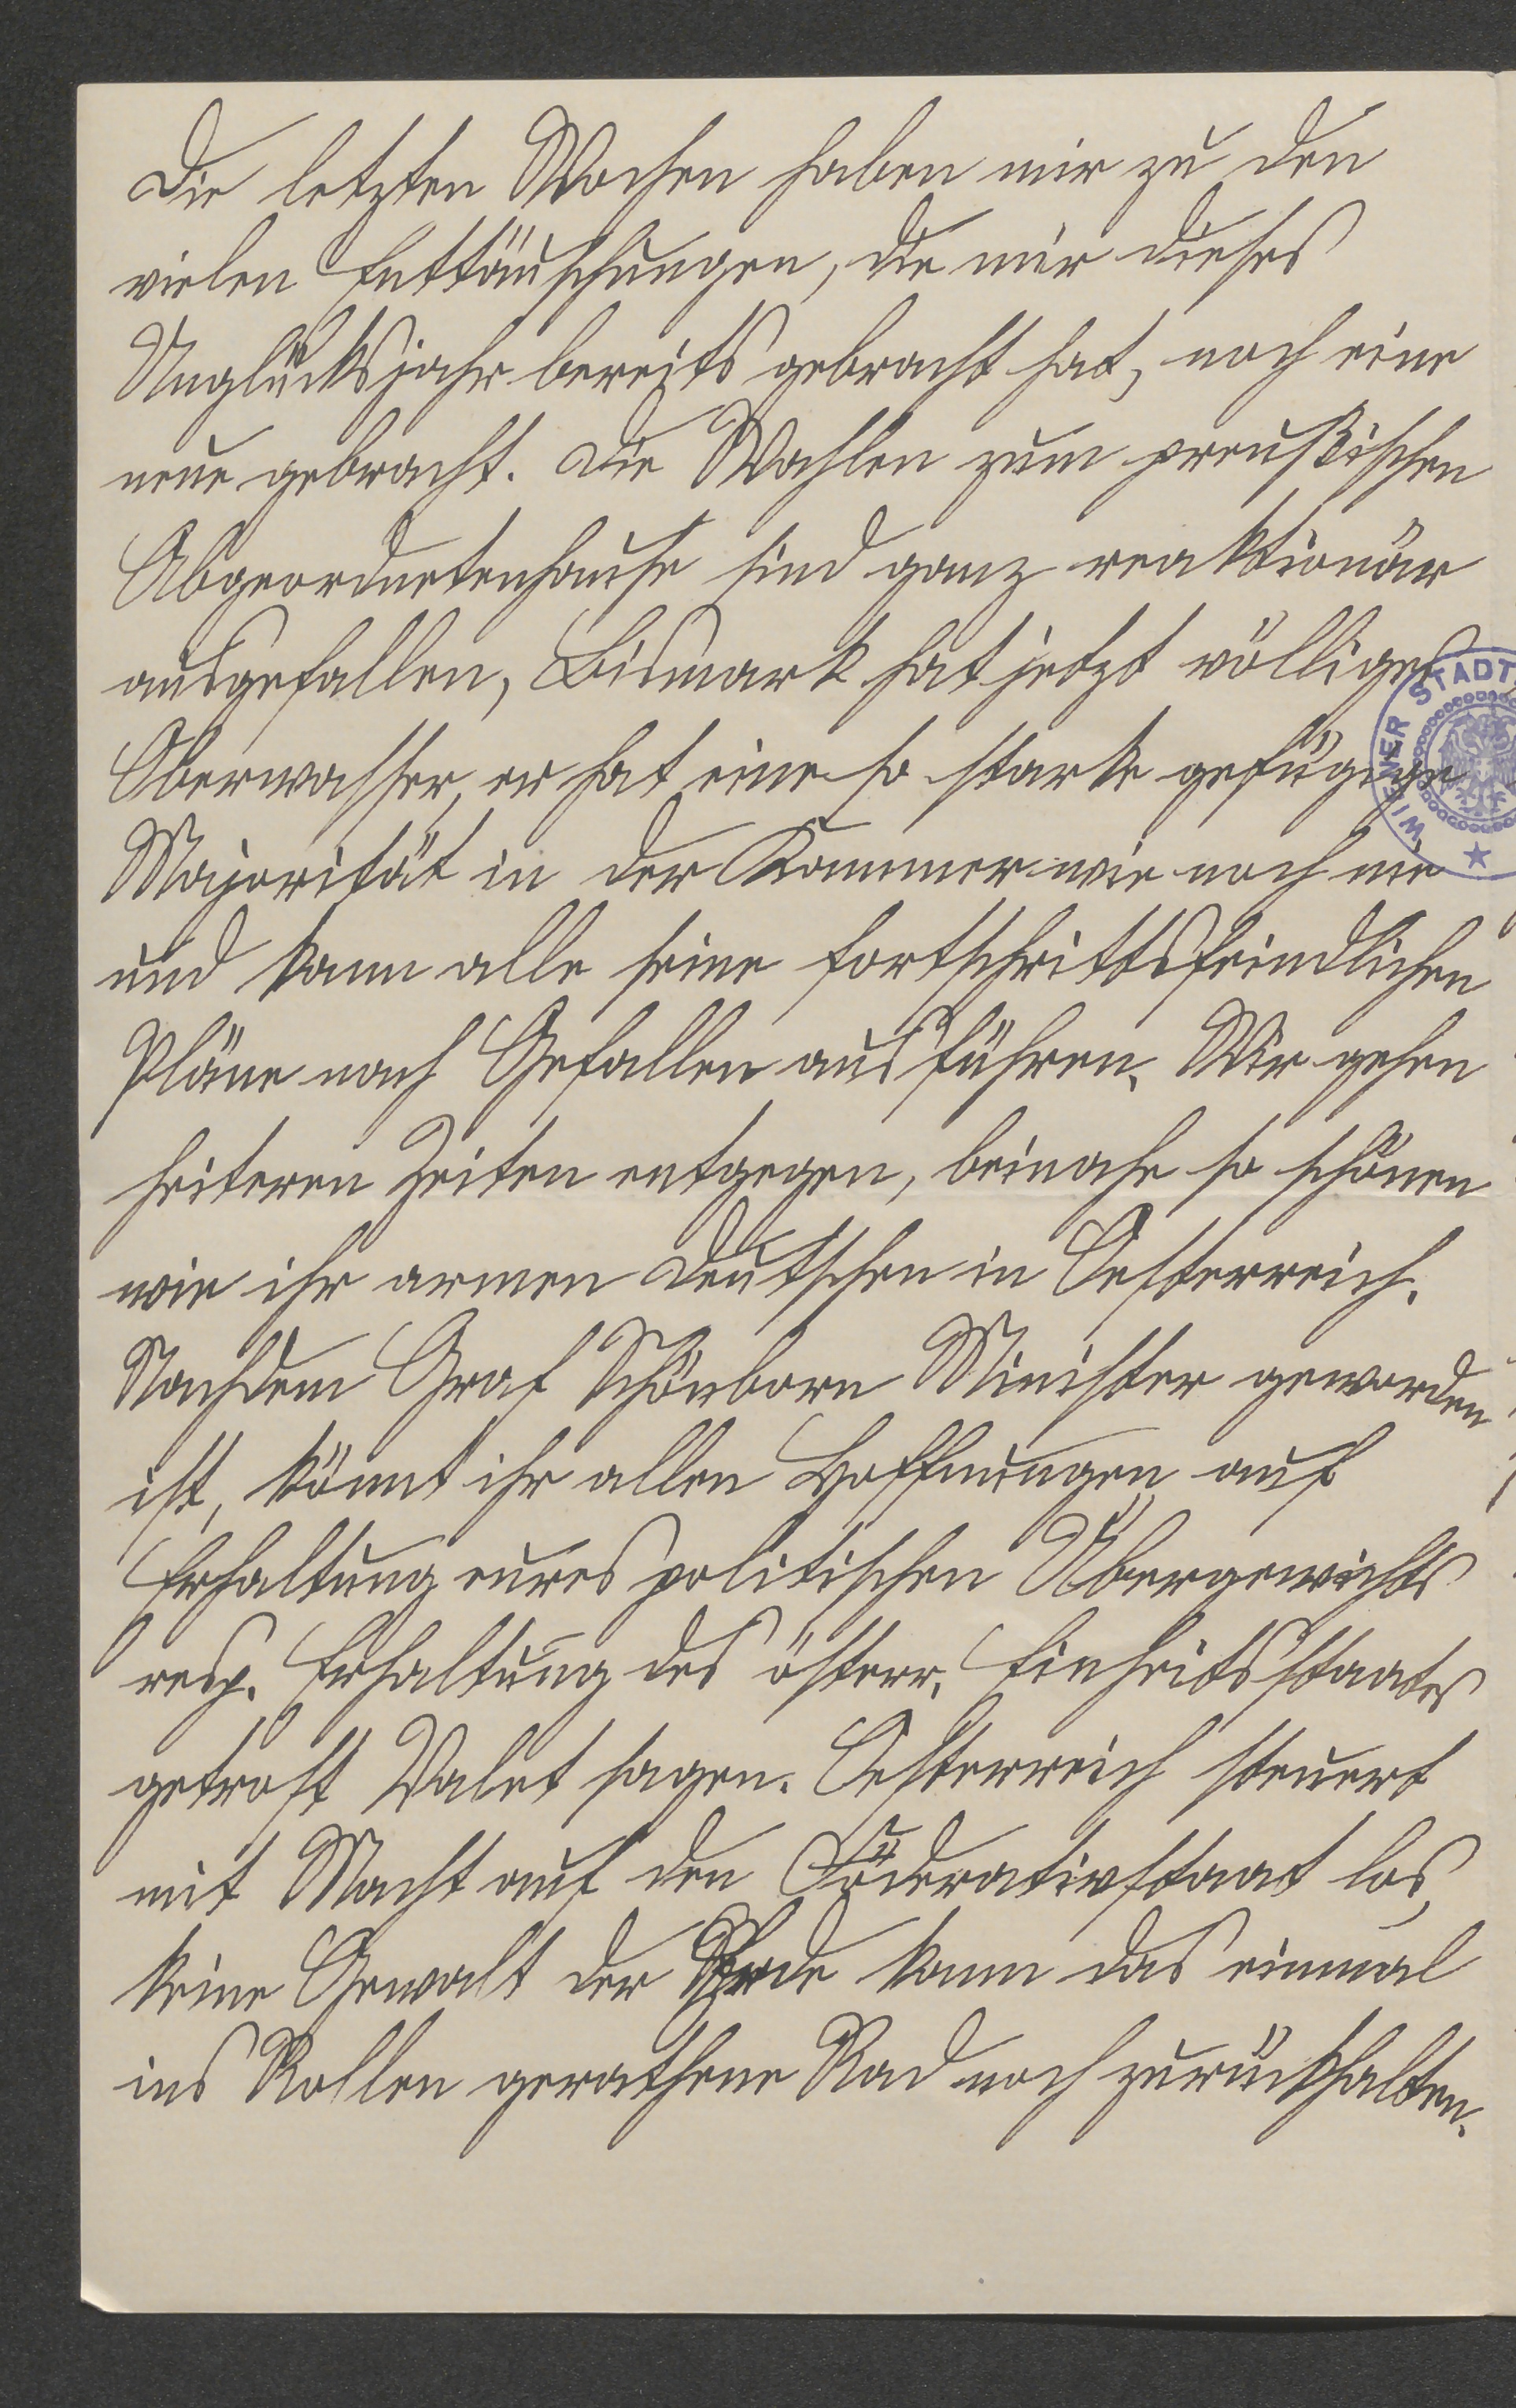 Die letzten Wochen haben mir zu den
vielen Enttäuschungen, die mir dieses
Unglücksjahr bereits gebracht hat, noch eine
neue gebracht. Die Wahlen zum preußischen
Abgeordnetenhause sind ganz reaktionär
ausgefallen, Bismark hat jetzt völliges
Oberwasser, er hat eine so starke gefügige
Majorität in der Kammer wie noch nie
und kann alle seine fortschrittsfeindlichen
Pläne nach Gefallen ausführen. Wir gehen
heiteren Zeiten entgegen, beinahe so schönen
wie ihr armen Deutschen in Oesterreich.
Nachdem Graf Schönborn Minister geworden
ist, könnt ihr allen Hoffnungen auf
Erhaltung eures politischen Übergewichts
resp. Erhaltung des österr. Einheitsstaates
getrost Valet sagen. Oesterreich steuert
mit Macht auf den Föderativstaat los,
keine Gewalt der Erde kann das einmal
ins Rollen gerathene Rad noch zurückhalten.
WIENER STADT